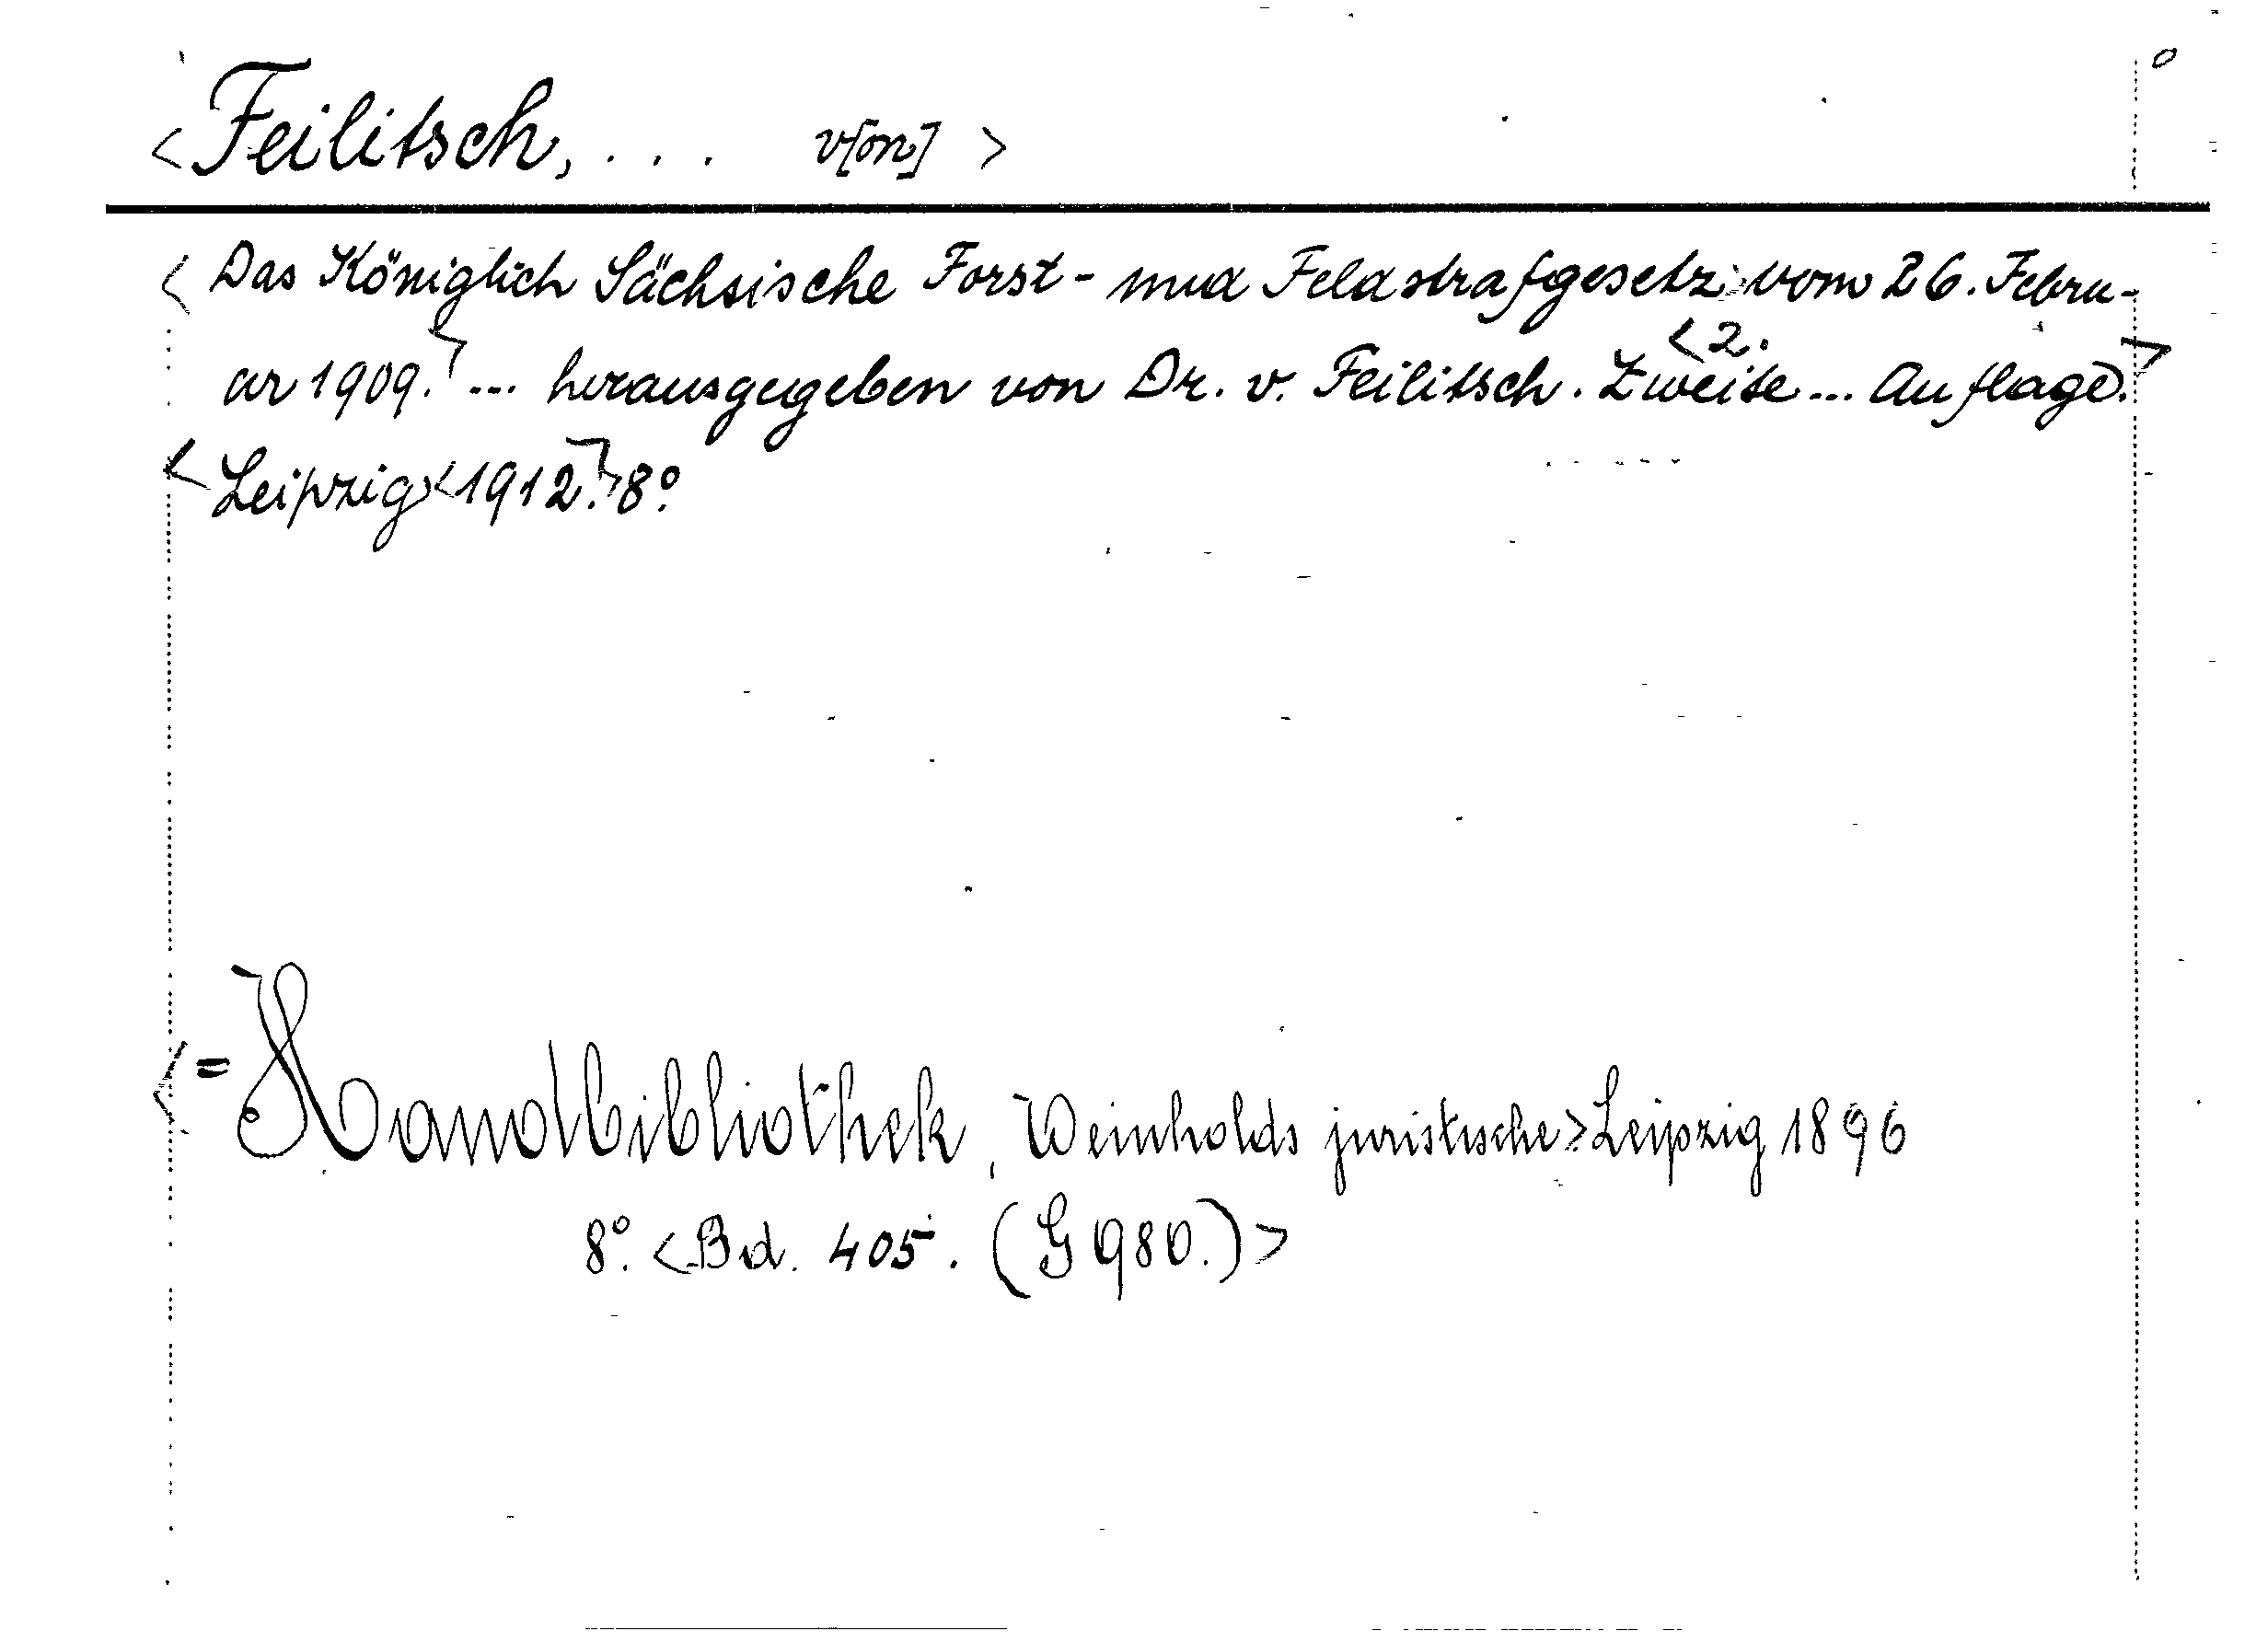 <Feilitsch, . . . v[on] >
< Das Königlich Sächsische Forst- und Feldstrafgesetz vom 26. Febru-
ar 1909.> ... herausgegeben von Dr. v. Feilitsch. <2. Zweite ... Auflage.>
<Leipzig><1912.> 8°.
<= Handbibliothek, Weinholds juristische> Leipzig 1896
8°. <Bd. 405. (G 980.)>